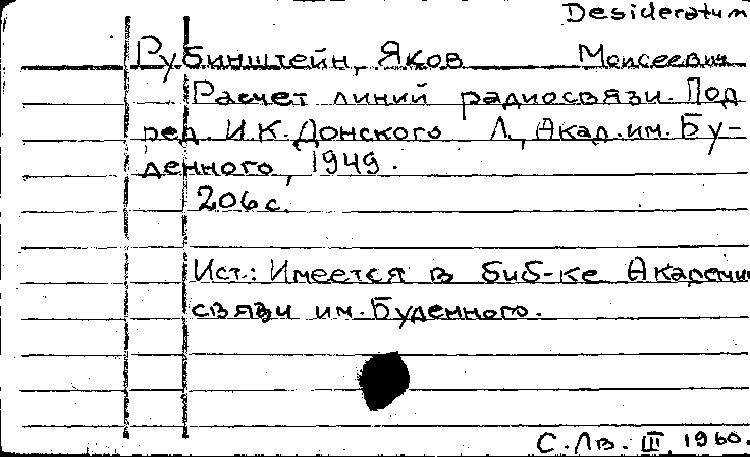 Desideratum
Рубинштейн, Яков Моисеевич
Расчет линий радиосвязи. Под
ред. И.К. Донского Л., Акад. им. Бу-
денного, 1949.
206 с.
Ист.: Имеется в биб-ке Академии
связи им. Буденного.
С. Лв. III. 1960.